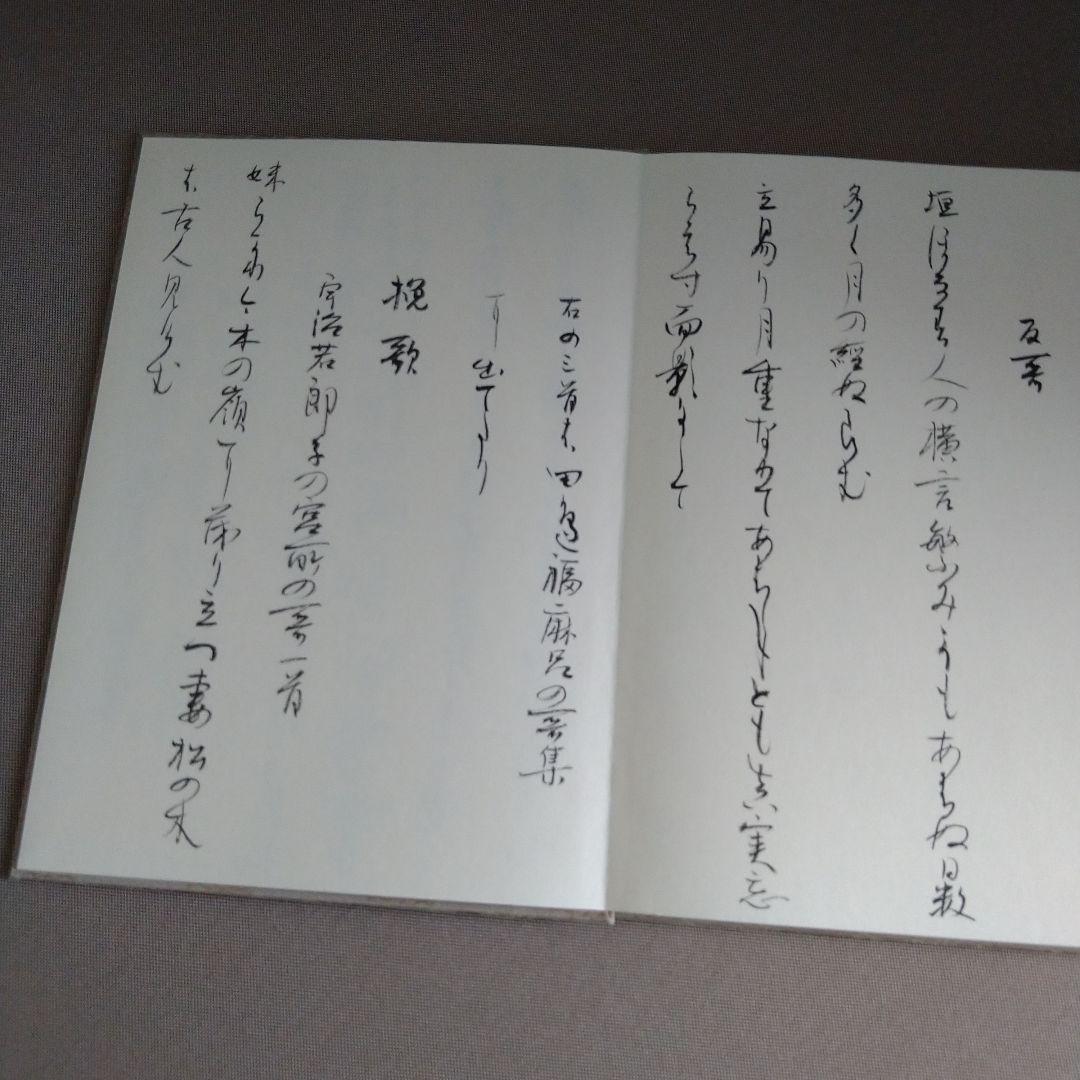 反哥
垣ほなす人の横言繁みかもあはぬ日数
多く月の經ぬらむ
立易り月重なりてあはねとも真実忘
らえす面影にして
右の三首は田邊福麻呂の哥集
より出てたり
挽歌
宇治若郎子の宮所の哥一首
妹らかり今木の嶺に茂り立つ妻松の木
は古人見けむ